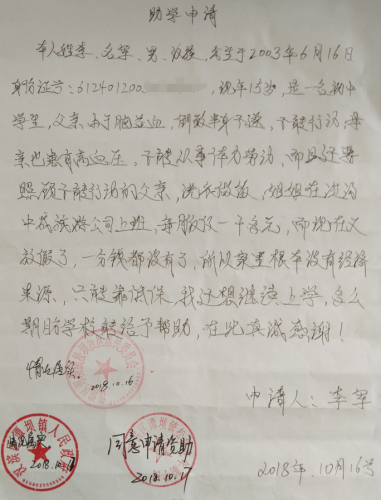 助学申请
本人姓李,名军,男,汉族,出生于2003年6月16日
身份证号:612401200,现年15岁,是一名初中
学生,父亲由于脑溢血,倒致半身不遂,不能行动,母
亲也患有高血压,不能从事体力劳动,而且还要
照顾不能行动的父亲,洗衣做饭,姐姐在汉沟
旅游公司上班,每月收入一千多元,而现在又
放假了,一分钱都没有了,所以家里根本没有经济
来源,只能靠低保,我还想继续上学,
期盼学校能给予帮助,在此真诚感谢!
情况属实
2018.10.16
申请人:李军
情况属实
2018.10.17
同意申请资助
2018.10.17
2018年10月16号